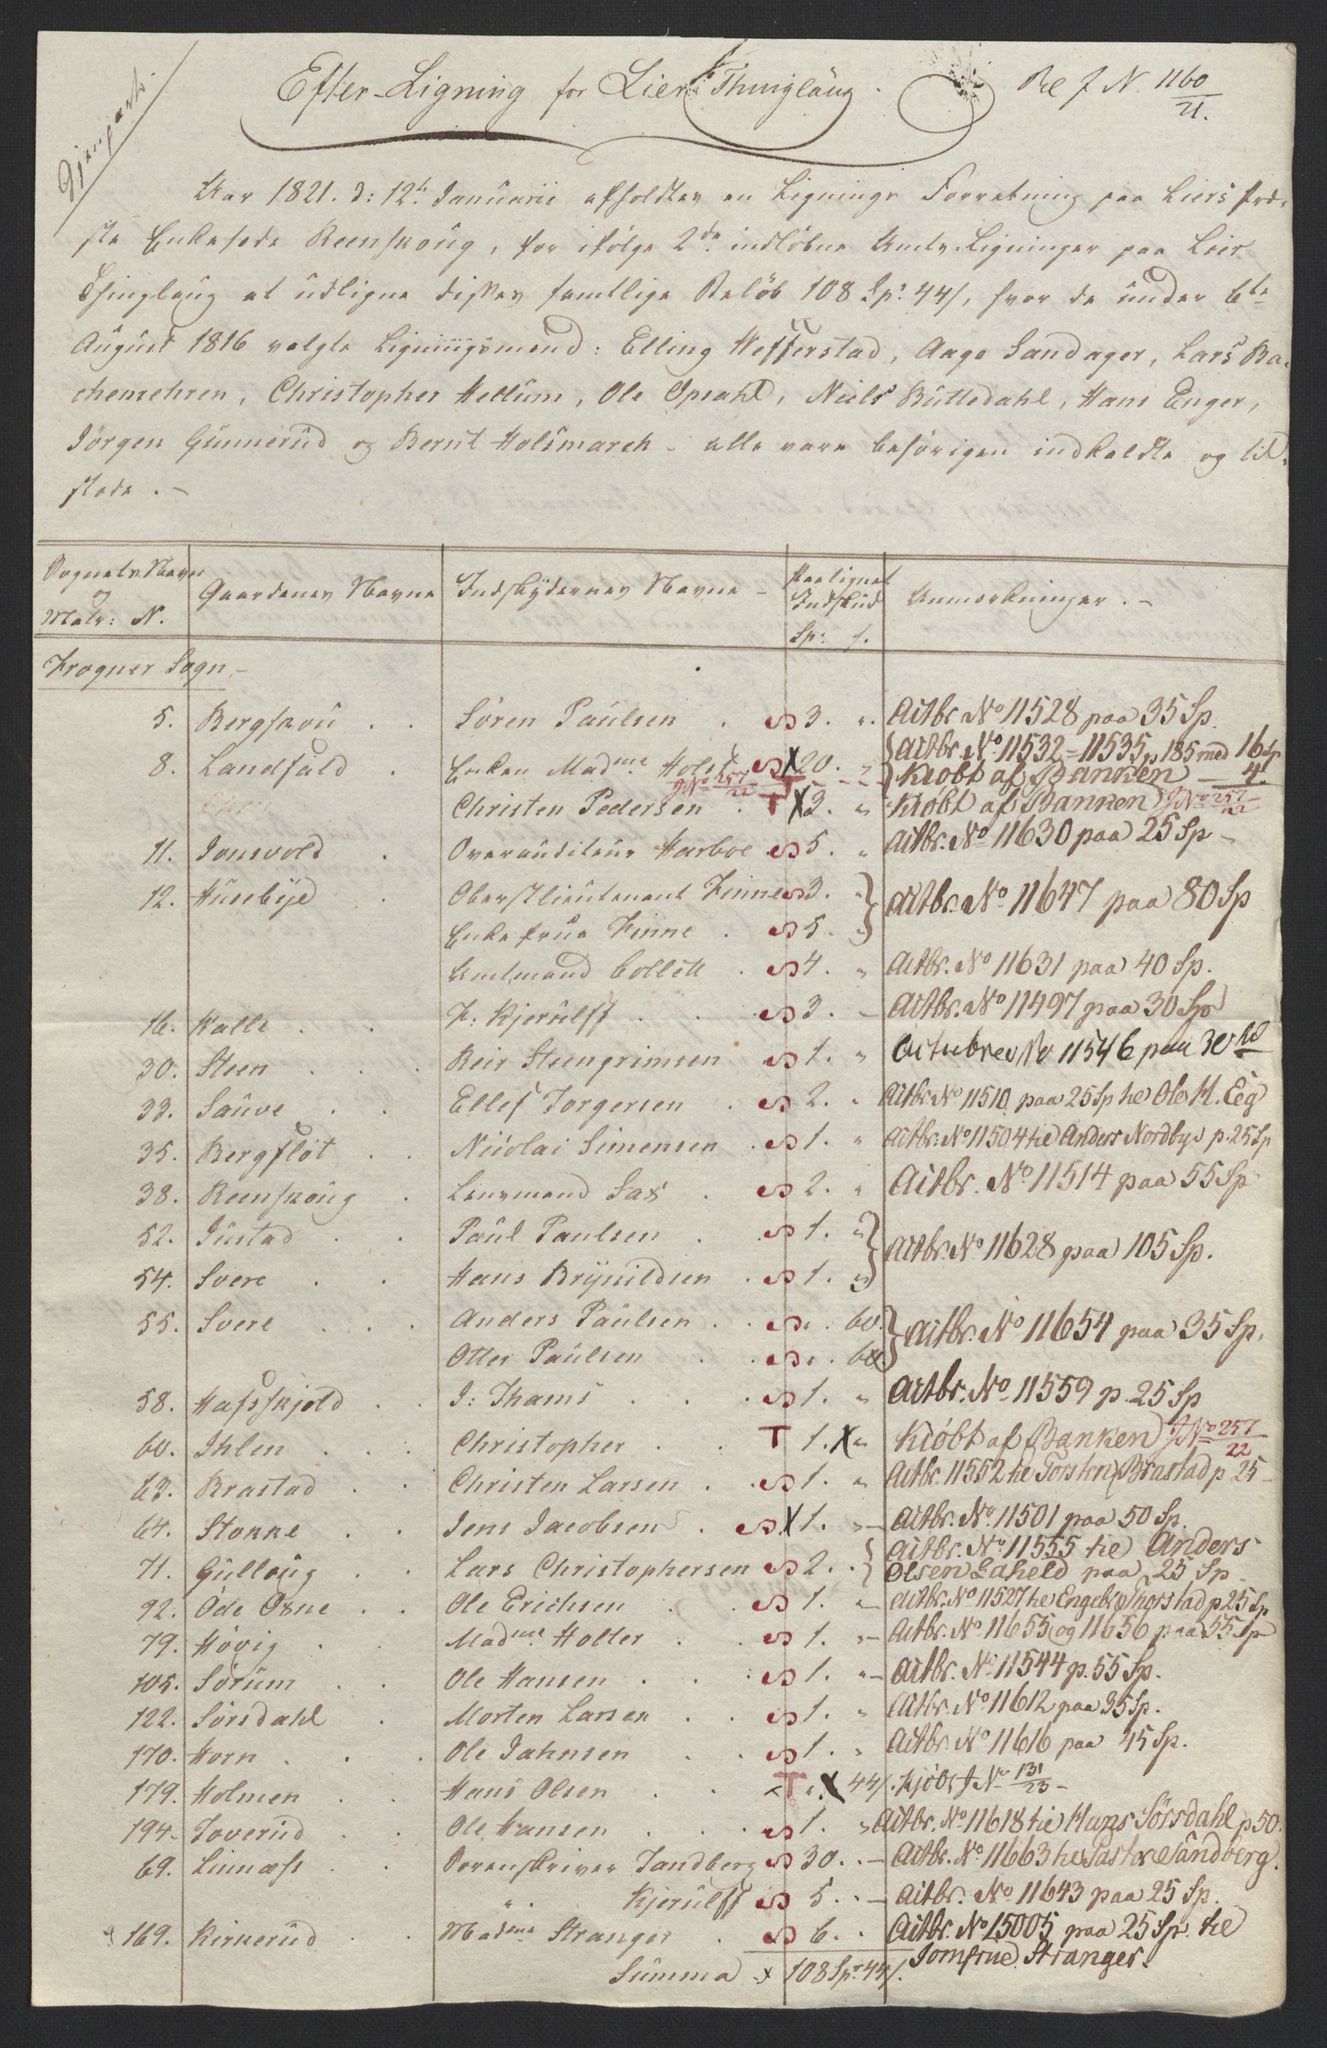 Gjenpart
Efter-Ligning for Liers Thinglaug. Rel J N. 1160/21.
Aar 1821. d: 12te Januarii afholdtes en Lignings Forretning paa Liers Præ-
ste Enkesæde Reenskoug, for ifølge 2de indløbne Amts Ligninger paa Lier
Thinglaug at udligne disses samtlige Beløb 108 Sp: 44 s, hvor de under 6te
August 1816 valgte Ligningsmænd: Elling Hefferstad, Aage Landager, Lars Ba-
chenrehren, Christopher Hellum, Ole Opsahl, Niels Buttedahl, Hans Enger,
Jörgen Gunnerud og Bernt Holsmarch - alle vare behörigen indkaldte og til-
stede. -
Sognets Navn og Matr: N. Gaardenes Navne Indskydernes Navne - Paalignet Indskud Sp: s. Anmærkninger. -
Frogner Sogn -
5. Bergskou . . Sören Paulsen . S 3. „. Actbr. No 11528 paa 35 Sp.
8. Landfald . Enken Madme Holst S X 20. „ { Actbr. No 11532 = 11535 p 185 med 16 Sp
JNo 257/22 T { Kiøbt af Banken — 4.
Christen Pedersen . T X 3. „ Kiøbt af Banken JNo 257/22
11. Jonsvold . Overauditeur Harboe S 5. „ Actbr. No 11630 paa 25 Sp -
12. Huusebye . Oberstlieutenant Finne S 3. „ } Actbr. No 11647 paa 80 Sp
Enkefrue Finne . S 5. „ }
Amtmand Collett . S 4. „ Actbr. No 11631 paa 40 Sp.
16. Halle . . F: Kjerulff . . S 3. – Actbr. No 11497 paa 30 Spd
30. Steen . . . Reir Steengrimsen S 1. „ Actiebrev No 11546 paa 30 Spd
33. Sauve . . Ellef Torgersen . S 2. „ Actbr No 11510 paa 25 Sp til Ole H. Eeg
35. Bergflöt . . Nicolai Simensen S 1. „ Actbr. No 11504 til Anders Nordbye p. 25 Sp
38. Reenskoug . Lensmand Sax . S 2. „ Actbr. No 11514 paa 55 Sp
52. Justad . . Paul Paulsen . S 1. „ } Actbr. No 11628 paa 105 Sp.
54. Svere . . Hans Brynildsen . S 1. „ }
55. Svere . . . Anders Paulsen . . S „. 60. } Actbr. No 11654 paa 35 Sp.
Otter Paulsen . . S „. 60 }
58. Hafsskjold . . J: Thams . . . S 1. „ Actbr. No 11559 p. 25 Sp
60. Ihlen . . . Christopher . . T 1. X „ Kiøbt af Banken JNo 257/22
63. Brastad . . Christen Larsen . . S 1. „ Actbr. 11552 til Torsten Brastad p 25 -
64. Stokke . . Jens Jacobsen . S X 1. „ – Actbr. No. 11501 paa 50 Sp.
71. Gulloug . . Lars Christophersen S 2. . { Actbr. No. 11555 til Anders
Olsen Eaheld paa 25 Sp -
92. Öde Ösne . . Ole Erichsen . . S 1. „ – Actbr. No 11527 til Engebr. Thorstad p 25 Sp
79. Hövig . . Madme Holter . . S 1. „ – Actbr. No 11655 og 11656 paa 55 Sp
105. Sörum . . Ole Hansen . . . S 1. „ – Actbr. No. 11544 p. 55 Sp.
122. Sörsdahl . Morten Larsen . . S 1. „ Actbr. No 11612 paa 35 Sp.
170. Horn . . . Ole Jahnsen . . S 1. „ Actbr. No 11616 paa 45 Sp.
179. Holmen . . Hans Olsen . . T „. X 44 s. Kjöbt J No 131/23 -
194. Toverud . . Ole Hansen . . . S 1. „ Actbr. No 11618 til Hans Sörsdahl p 50.
69. Linnæss . . Sorenskriver Sandberg S 30. . – Actbr. No 11663 til Pastor Sandberg.
„ . Kjerulff S 5. . – Actbr. No 11643 paa 25 Sp.
169. Kirkerud . . Madme Stranger . S 6. . Actbr. No 15005 paa 25 Sp. til
Jomfrue Stranger.
Summa x 108 Sp: 44 s.